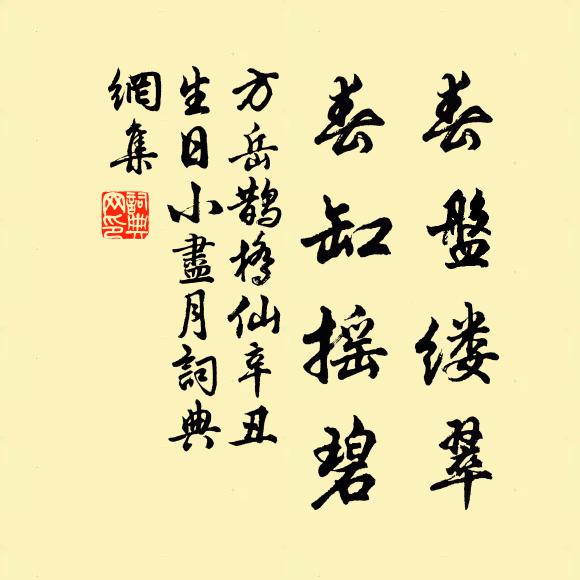 春盤缕翠
春缸摇碧
方岳鹊橋仙辛丑
生日小盡月詞典
網集
詞典
网印